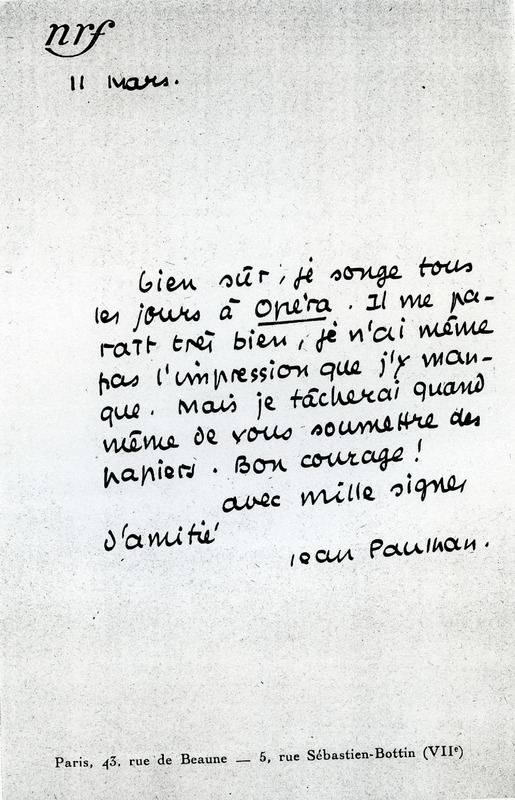 nrf
11 mars.
bien sûr, je songe tous
les jours à Opéra. Il me pa-
raît très bien, je n'ai même
pas l'impression que j'y man-
que. Mais je tâcherai quand
même de vous soumettre des
papiers. Bon courage!
avec mille signes
d'amitié
Jean Paulhan.
Paris, 43, rue de Beaune — 5, rue Sébastien-Bottin (VIIe)